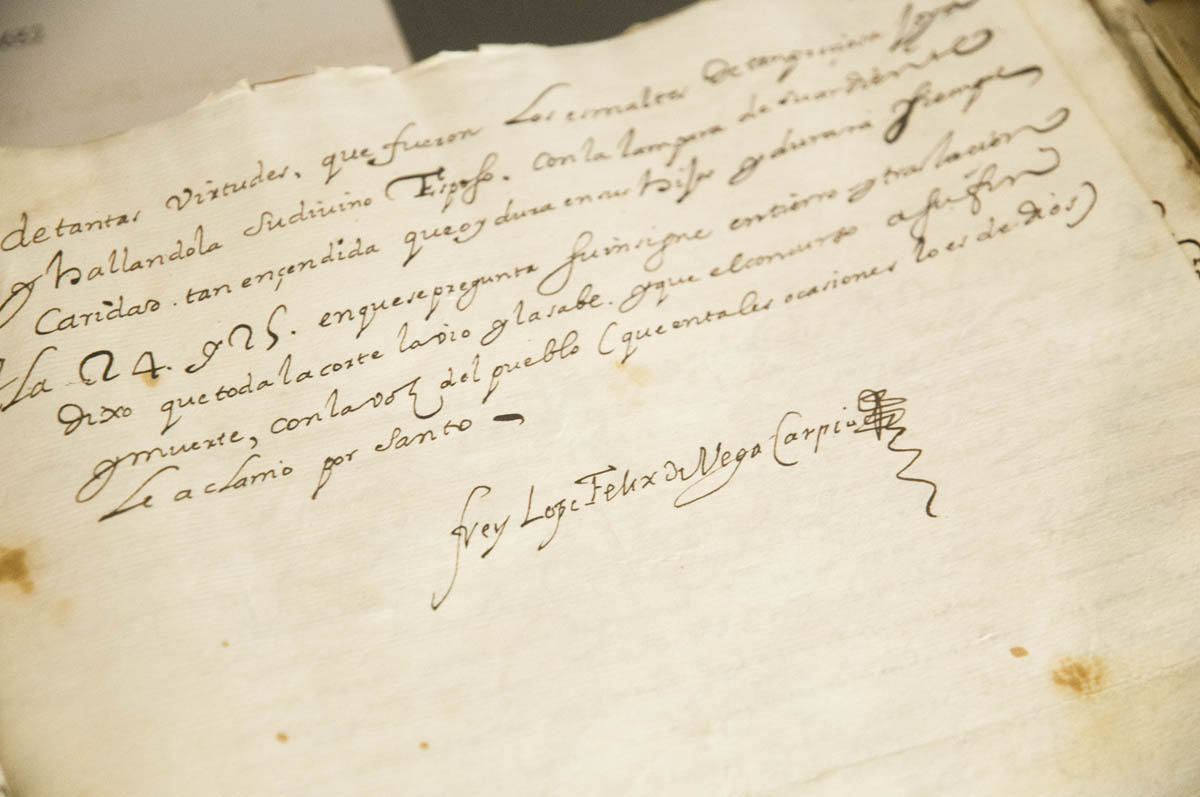 de tantas virtudes, que fueron los esmaltes de tan preciosa joya
y hallandola su divino Esposo. con la lampara de su ardiente
Caridad. tan ençendida que oy dura en sus hijos y durará siempre
A la 24. y 25. en que se pregunta su insigne entierro y traslacion
dixo que toda la corte la vio y la sabe. y que el concurso a su fin
y muerte, con la voz del pueblo (que en tales ocasiones lo es de Dios)
Le aclamó por santo
frey Lope Felix de Vega Carpio